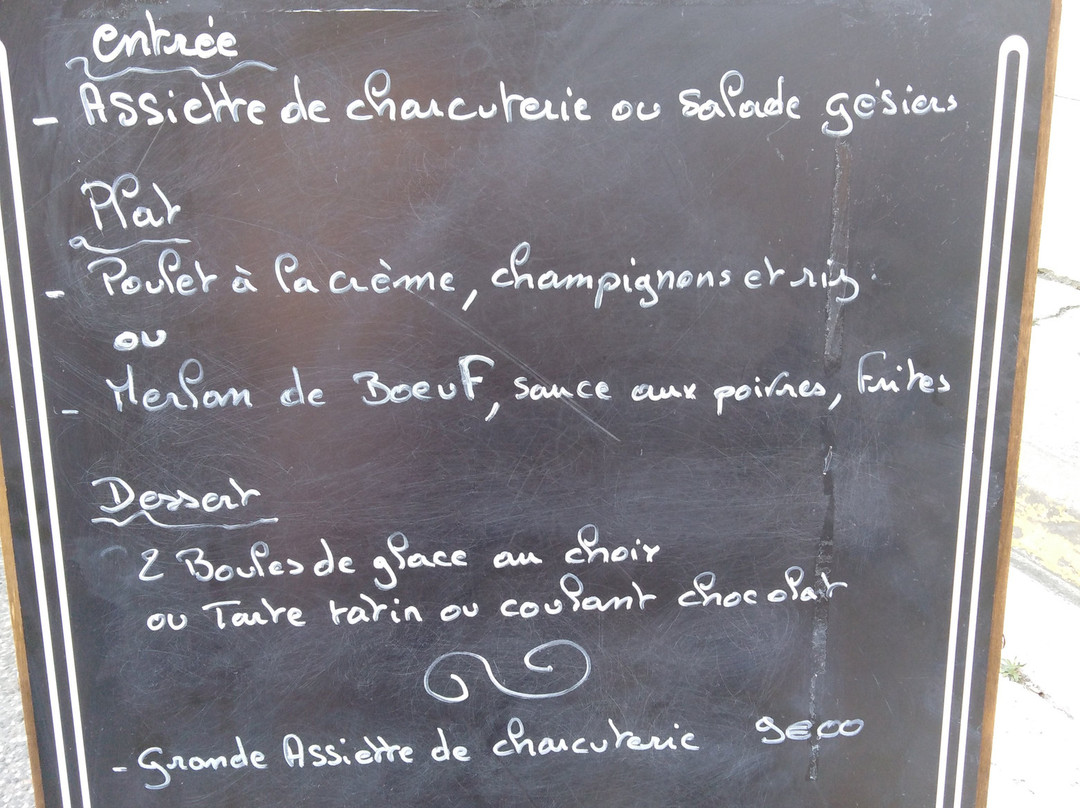 entrée
- Assiette de charcuterie ou Salade gésiers
Plat
- Poulet à la crème, champignons et riz.
ou
- Merlan de Boeuf, sauce aux poivres, Frites
Dessert
2 Boules de glace au choix
ou Tarte tatin ou coulant chocolat
- Grande Assiette de charcuterie 9€00